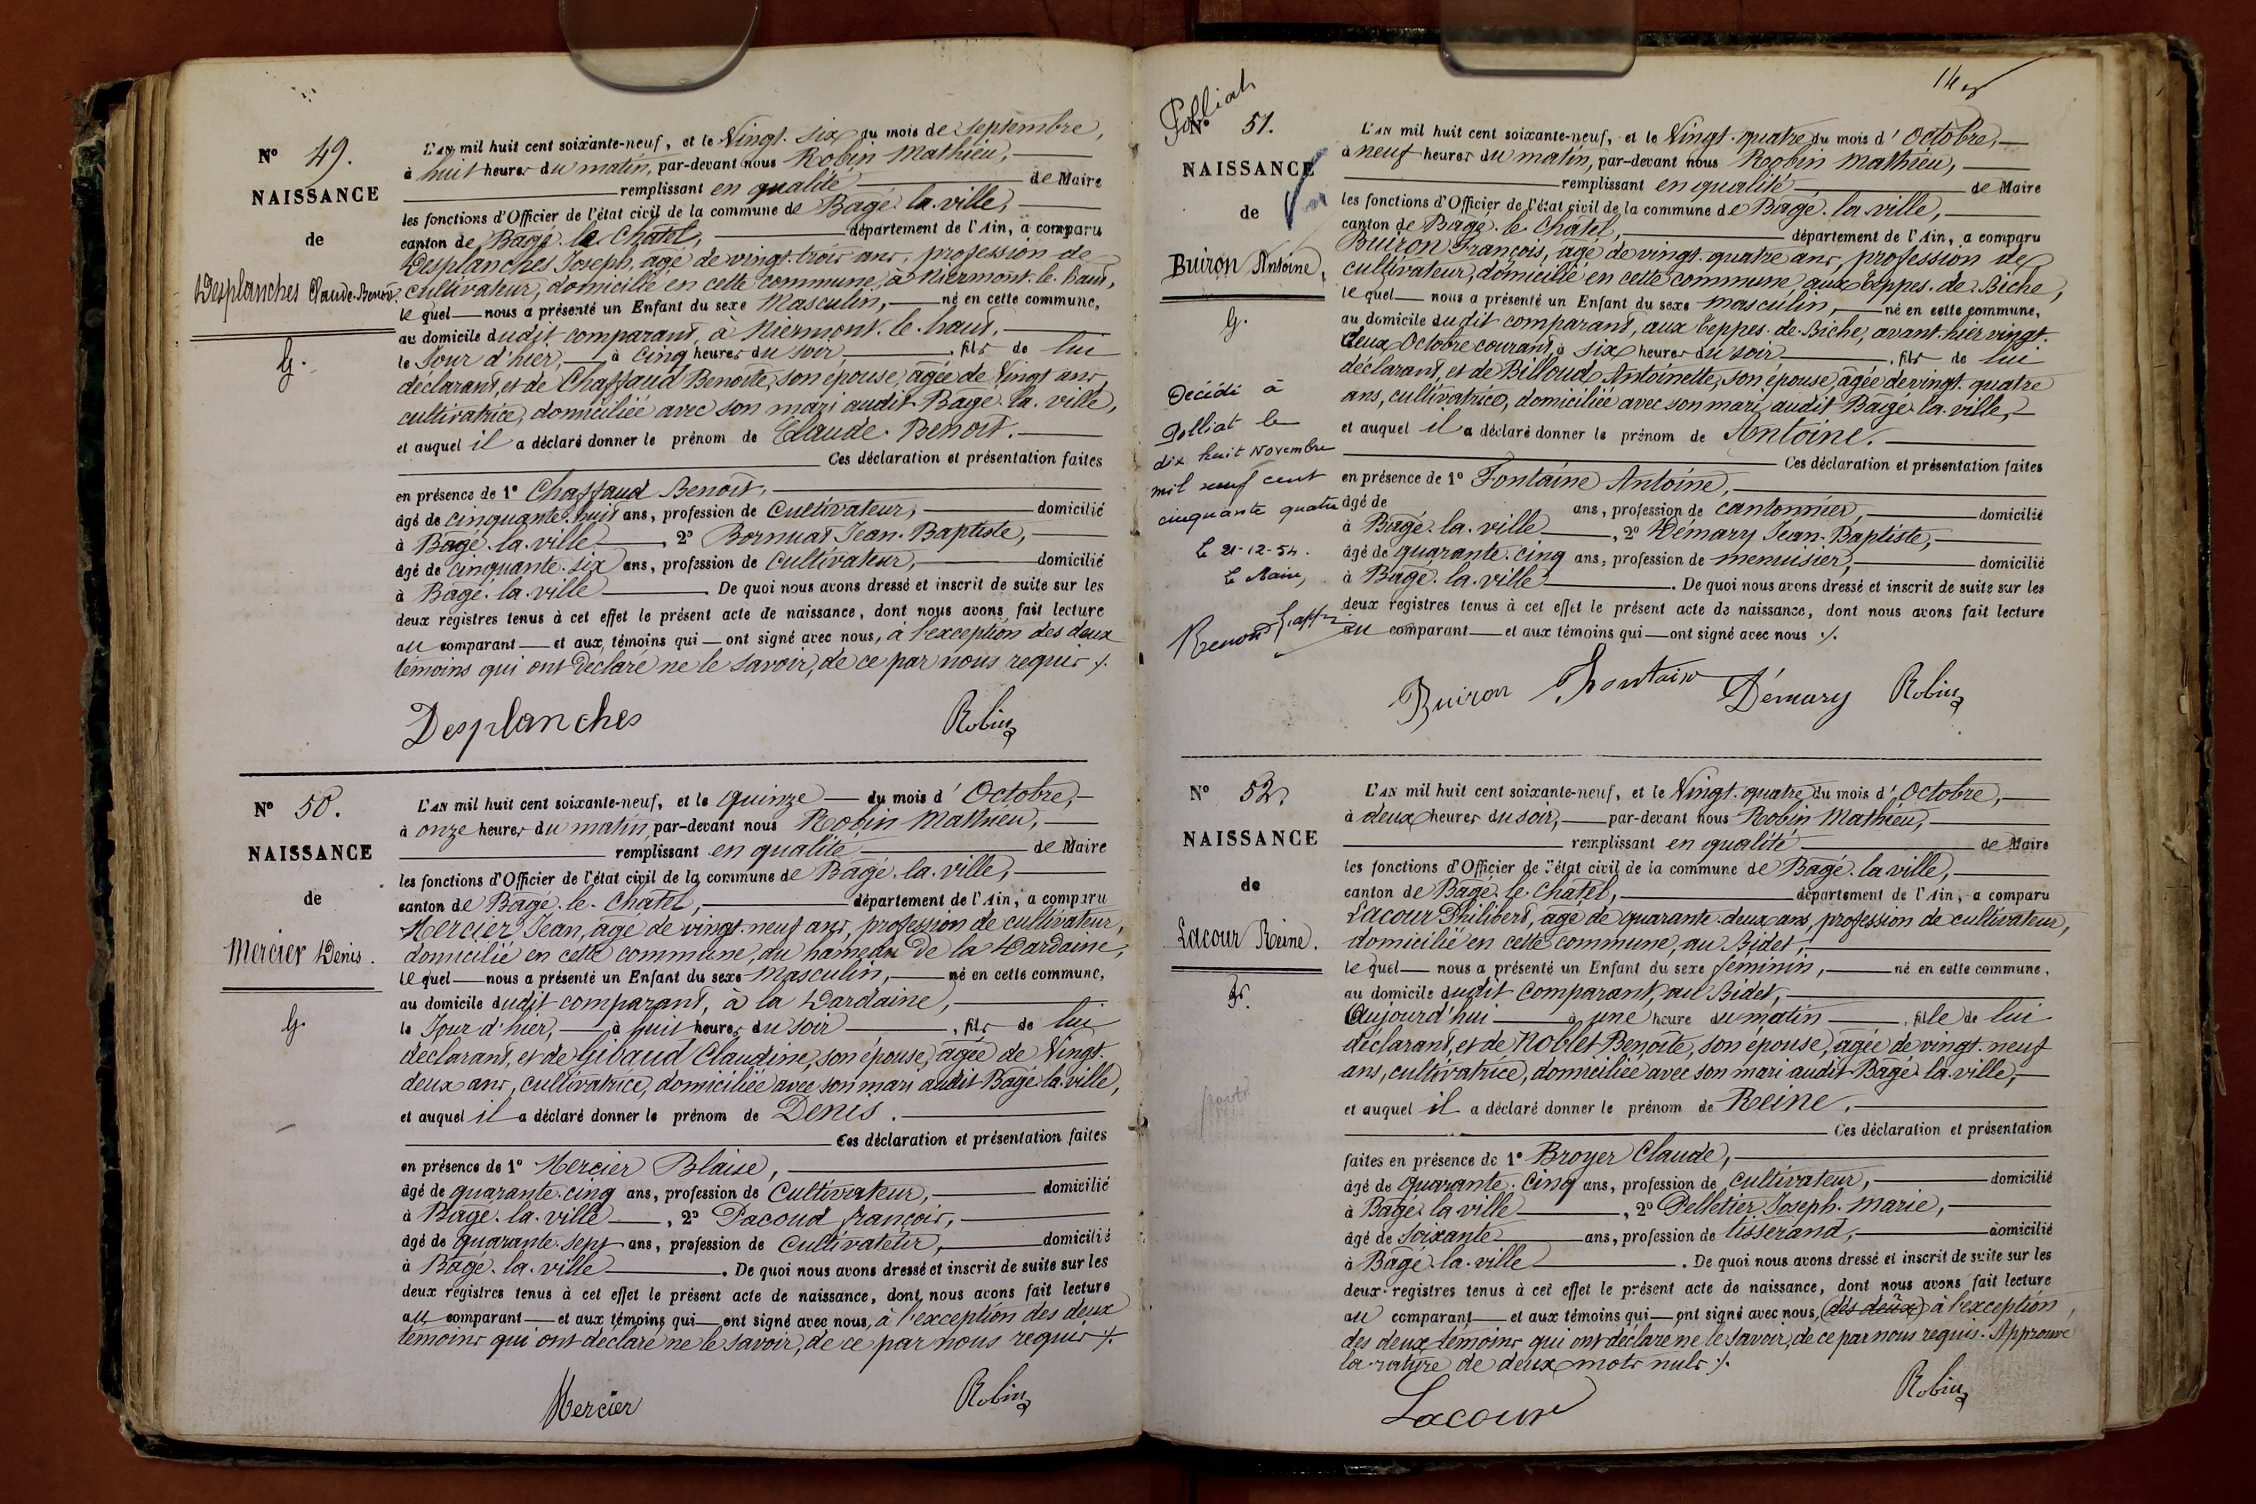 N° 49.
NAISSANCE
de
Desplanches Claude-Benoit.
G.
L'AN mil huit cent soixante-neuf, et le Vingt-six du mois de Septembre,
à huit heures du matin, par-devant nous Robin Mathieu,
remplissant en qualité de Maire
les fonctions d'Officier de l'état civil de la commune de Bagé-la-ville,
canton de Bagé-le-Chatel, département de l'Ain, a comparu
Desplanches Joseph, âgé de vingt-trois ans, profession de
cultivateur, domicilié en cette commune, à Niermont-le-haut,
lequel nous a présenté un Enfant du sexe Masculin, né en cette commune,
au domicile dudit comparant, à Niermont-le-haut,
le Jour d'hier, à cinq heures du soir, fils de lui
déclarant, et de Chaffaud Benoîte, son épouse, âgée de Vingt ans,
cultivatrice, domiciliée avec son mari audit Bagé-la-ville,
et auquel il a déclaré donner le prénom de Claude-Benoit.
Ces déclaration et présentation faites
en présence de 1° Chaffaud Benoit,
âgé de cinquante-huit ans, profession de Cultivateur, domicilié
à Bagé-la-ville, 2° Bornuat Jean-Baptiste,
âgé de cinquante-six ans, profession de Cultivateur, domicilié
à Bagé-la-ville. De quoi nous avons dressé et inscrit de suite sur les
deux registres tenus à cet effet le présent acte de naissance, dont nous avons fait lecture
au comparant et aux témoins qui ont signé avec nous, à l'exception des deux
témoins qui ont déclaré ne le savoir, de ce par nous requis ./.
Desplanches Robin
N° 50.
NAISSANCE
de
Mercier Denis.
G.
L'AN mil huit cent soixante-neuf, et le quinze du mois d'Octobre,
à onze heures du matin, par-devant nous Robin Mathieu,
remplissant en qualité de Maire
les fonctions d'Officier de l'état civil de la commune de Bagé-la-ville,
canton de Bagé-le-Chatel, département de l'Ain, a comparu
Mercier Jean, âgé de vingt-neuf ans, profession de cultivateur,
domicilié en cette commune, au hameau de la Dardaine,
lequel nous a présenté un Enfant du sexe Masculin, né en cette commune,
au domicile dudit comparant, à la Dardaine,
le Jour d'hier, à huit heures du soir, fils de lui
déclarant, et de Gibaud Claudine, son épouse, âgée de Vingt-
deux ans, cultivatrice, domiciliée avec son mari audit Bagé-la-ville,
et auquel il a déclaré donner le prénom de Denis.
Ces déclaration et présentation faites
en présence de 1° Mercier Blaise,
âgé de quarante-cinq ans, profession de Cultivateur, domicilié
à Bagé-la-ville, 2° Pacoud françois,
âgé de quarante-sept ans, profession de Cultivateur, domicilié
à Bagé-la-ville. De quoi nous avons dressé et inscrit de suite sur les
deux registres tenus à cet effet le présent acte de naissance, dont nous avons fait lecture
au comparant et aux témoins qui ont signé avec nous, à l'exception des deux
témoins qui ont déclaré ne le savoir, de ce par nous requis ./.
Mercier Robin
14
Polliat
N° 51.
NAISSANCE
de
Buiron Antoine,
G.
Décédé à
Polliat le
dix huit Novembre
mil neuf cent
cinquante quatre
le 21-12-54.
Le Maire,
L'AN mil huit cent soixante-neuf, et le Vingt-quatre du mois d'Octobre,
à neuf heures du matin, par-devant nous Robin Mathieu,
remplissant en qualité de Maire
les fonctions d'Officier de l'état civil de la commune de Bagé-la-ville,
canton de Bagé-le-Chatel, département de l'Ain, a comparu
Buiron François, âgé de vingt-quatre ans, profession de
cultivateur, domicilié en cette commune, aux teppes-de-Biche,
lequel nous a présenté un Enfant du sexe masculin, né en cette commune,
au domicile dudit comparant, aux teppes-de-Biche, avant-hier vingt-
deux Octobre courant, à six heures du soir, fils de lui
déclarant, et de Billoud Antoinette, son épouse, âgée de vingt-quatre
ans, cultivatrice, domiciliée avec son mari audit Bagé-la-ville,
et auquel il a déclaré donner le prénom de Antoine.
Ces déclaration et présentation faites
en présence de 1° Fontaine Antoine,
âgé de ans, profession de cantonnier, domicilié
à Bagé-la-ville, 2° Démary Jean-Baptiste,
âgé de quarante-cinq ans, profession de menuisier, domicilié
à Bagé-la-ville. De quoi nous avons dressé et inscrit de suite sur les
deux registres tenus à cet effet le présent acte de naissance, dont nous avons fait lecture
au comparant et aux témoins qui ont signé avec nous ./.
Buiron Fontaine Démary Robin
N° 52.
NAISSANCE
de
Lacour Reine.
L'AN mil huit cent soixante-neuf, et le Vingt-quatre du mois d'Octobre,
à deux heures du soir, par-devant nous Robin Mathieu,
remplissant en qualité de Maire
les fonctions d'Officier de l'état civil de la commune de Bagé-la-ville,
canton de Bagé-le-Chatel, département de l'Ain, a comparu
Lacour Philibert, âgé de quarante-deux ans, profession de cultivateur,
domicilié en cette commune, au Bidet,
lequel nous a présenté un Enfant du sexe féminin, né en cette commune,
au domicile dudit Comparant, au Bidet,
Aujourd'hui à une heure du matin, fille de lui
déclarant, et de Noblet Benoîte, son épouse, âgée de vingt-neuf
ans, cultivatrice, domiciliée avec son mari audit Bagé-la-ville,
et auquel il a déclaré donner le prénom de Reine.
Ces déclaration et présentation
faites en présence de 1° Broyer Claude,
âgé de quarante-cinq ans, profession de cultivateur, domicilié
à Bagé-la-ville, 2° Pelletier Joseph-Marie,
âgé de soixante ans, profession de tisserand, domicilié
à Bagé-la-ville. De quoi nous avons dressé et inscrit de suite sur les
deux registres tenus à cet effet le présent acte de naissance, dont nous avons fait lecture
au comparant et aux témoins qui ont signé avec nous, (des deux) à l'exception
des deux témoins qui ont déclaré ne le savoir, de ce par nous requis. Approuvé
la rature de deux mots nuls ./.
Lacour Robin